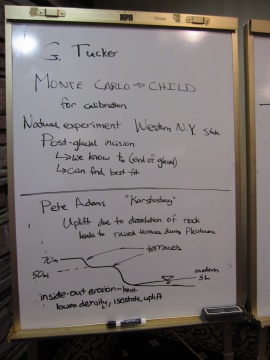 G. Tucker
MONTE CARLO → CHILD
for calibration
Natural experiment Western N.Y. State
Post-glacial incision
↳ we know t₀ (end of glacial)
↳ can find best-fit
Pete Adams
Uplift due to dissolution of rock
leads to raised terraces during Pleistocene
terraces
70m
50m
modern
SL
inside-out erosion - karst
lowers density, isostatic uplift